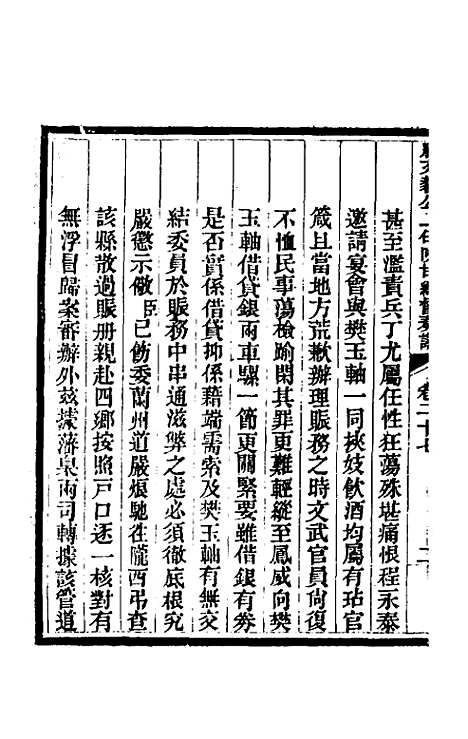 甚至濫責兵丁尤屬任性狂蕩殊堪痛恨程永泰
邀請宴會與樊玉軸一同挾妓飲酒均屬有玷官
箴且當地方荒歉辦理賑務之時文武官員尙復
不恤民事蕩檢踰閑其罪更難輕縱至鳳威向樊
玉軸借貸銀兩車騾一節更關緊要雖借銀有劵
是否實係借貸抑係藉端需索及樊玉軸有無交
結委員於賑務中串通滋弊之處必須徹底根究
嚴懲示儆臣已飭委蘭州道嚴烺馳往隴西弔查
該縣散過賑册親赴四鄉按照戸口逐一核對有
無浮冒歸案審辦外茲據藩臬兩司轉據該管道
卷二十七